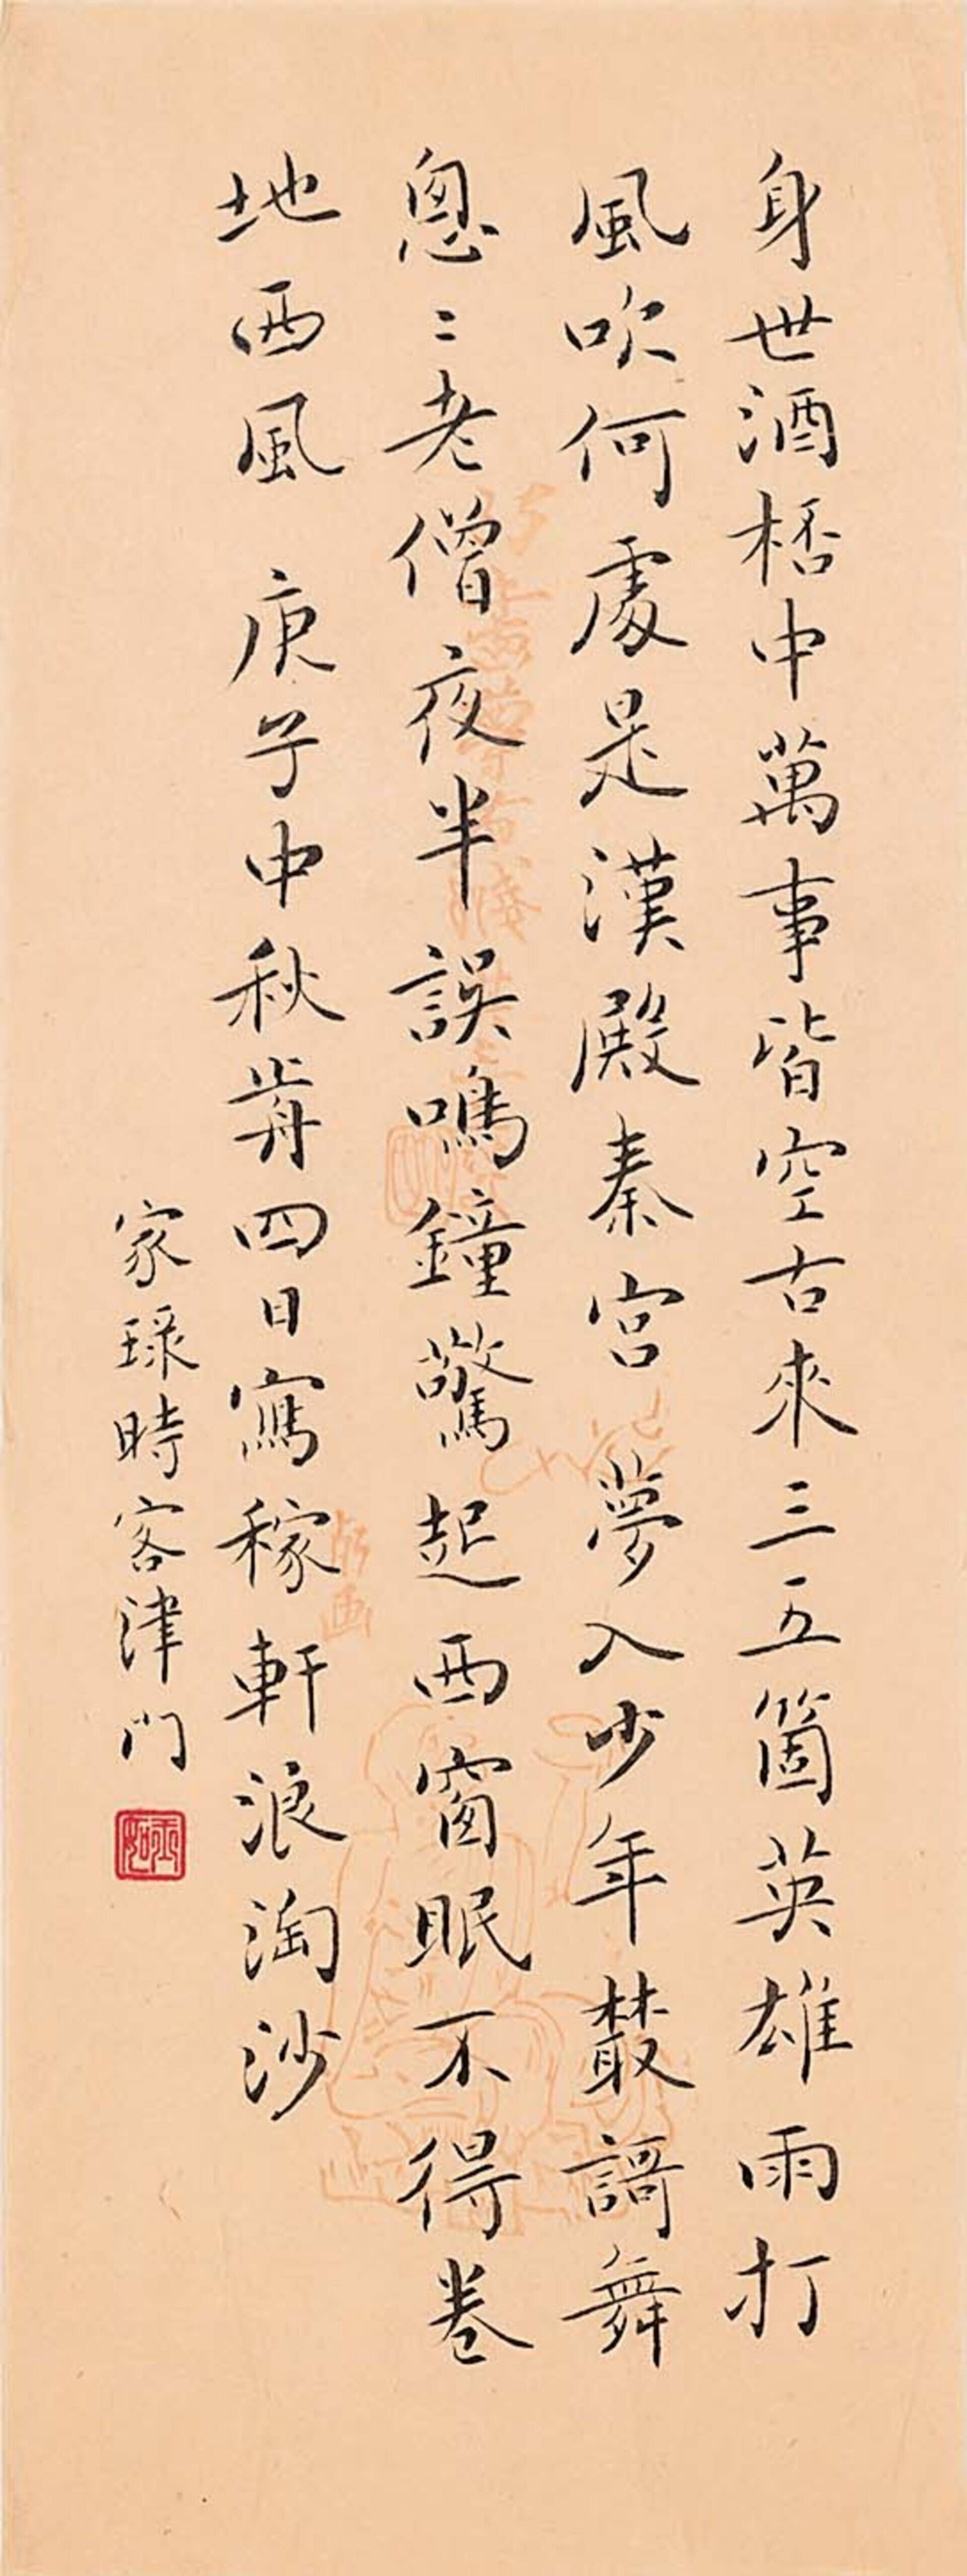 身世酒桮中萬事皆空古來三五箇英雄雨打
風吹何處是漢殿秦宮夢入少年叢謌舞
悤〻老僧夜半誤鳴鐘驚起西窗眠不得卷
地西風 庚子中秋歬四日寫稼軒浪淘沙
家琭時客津門